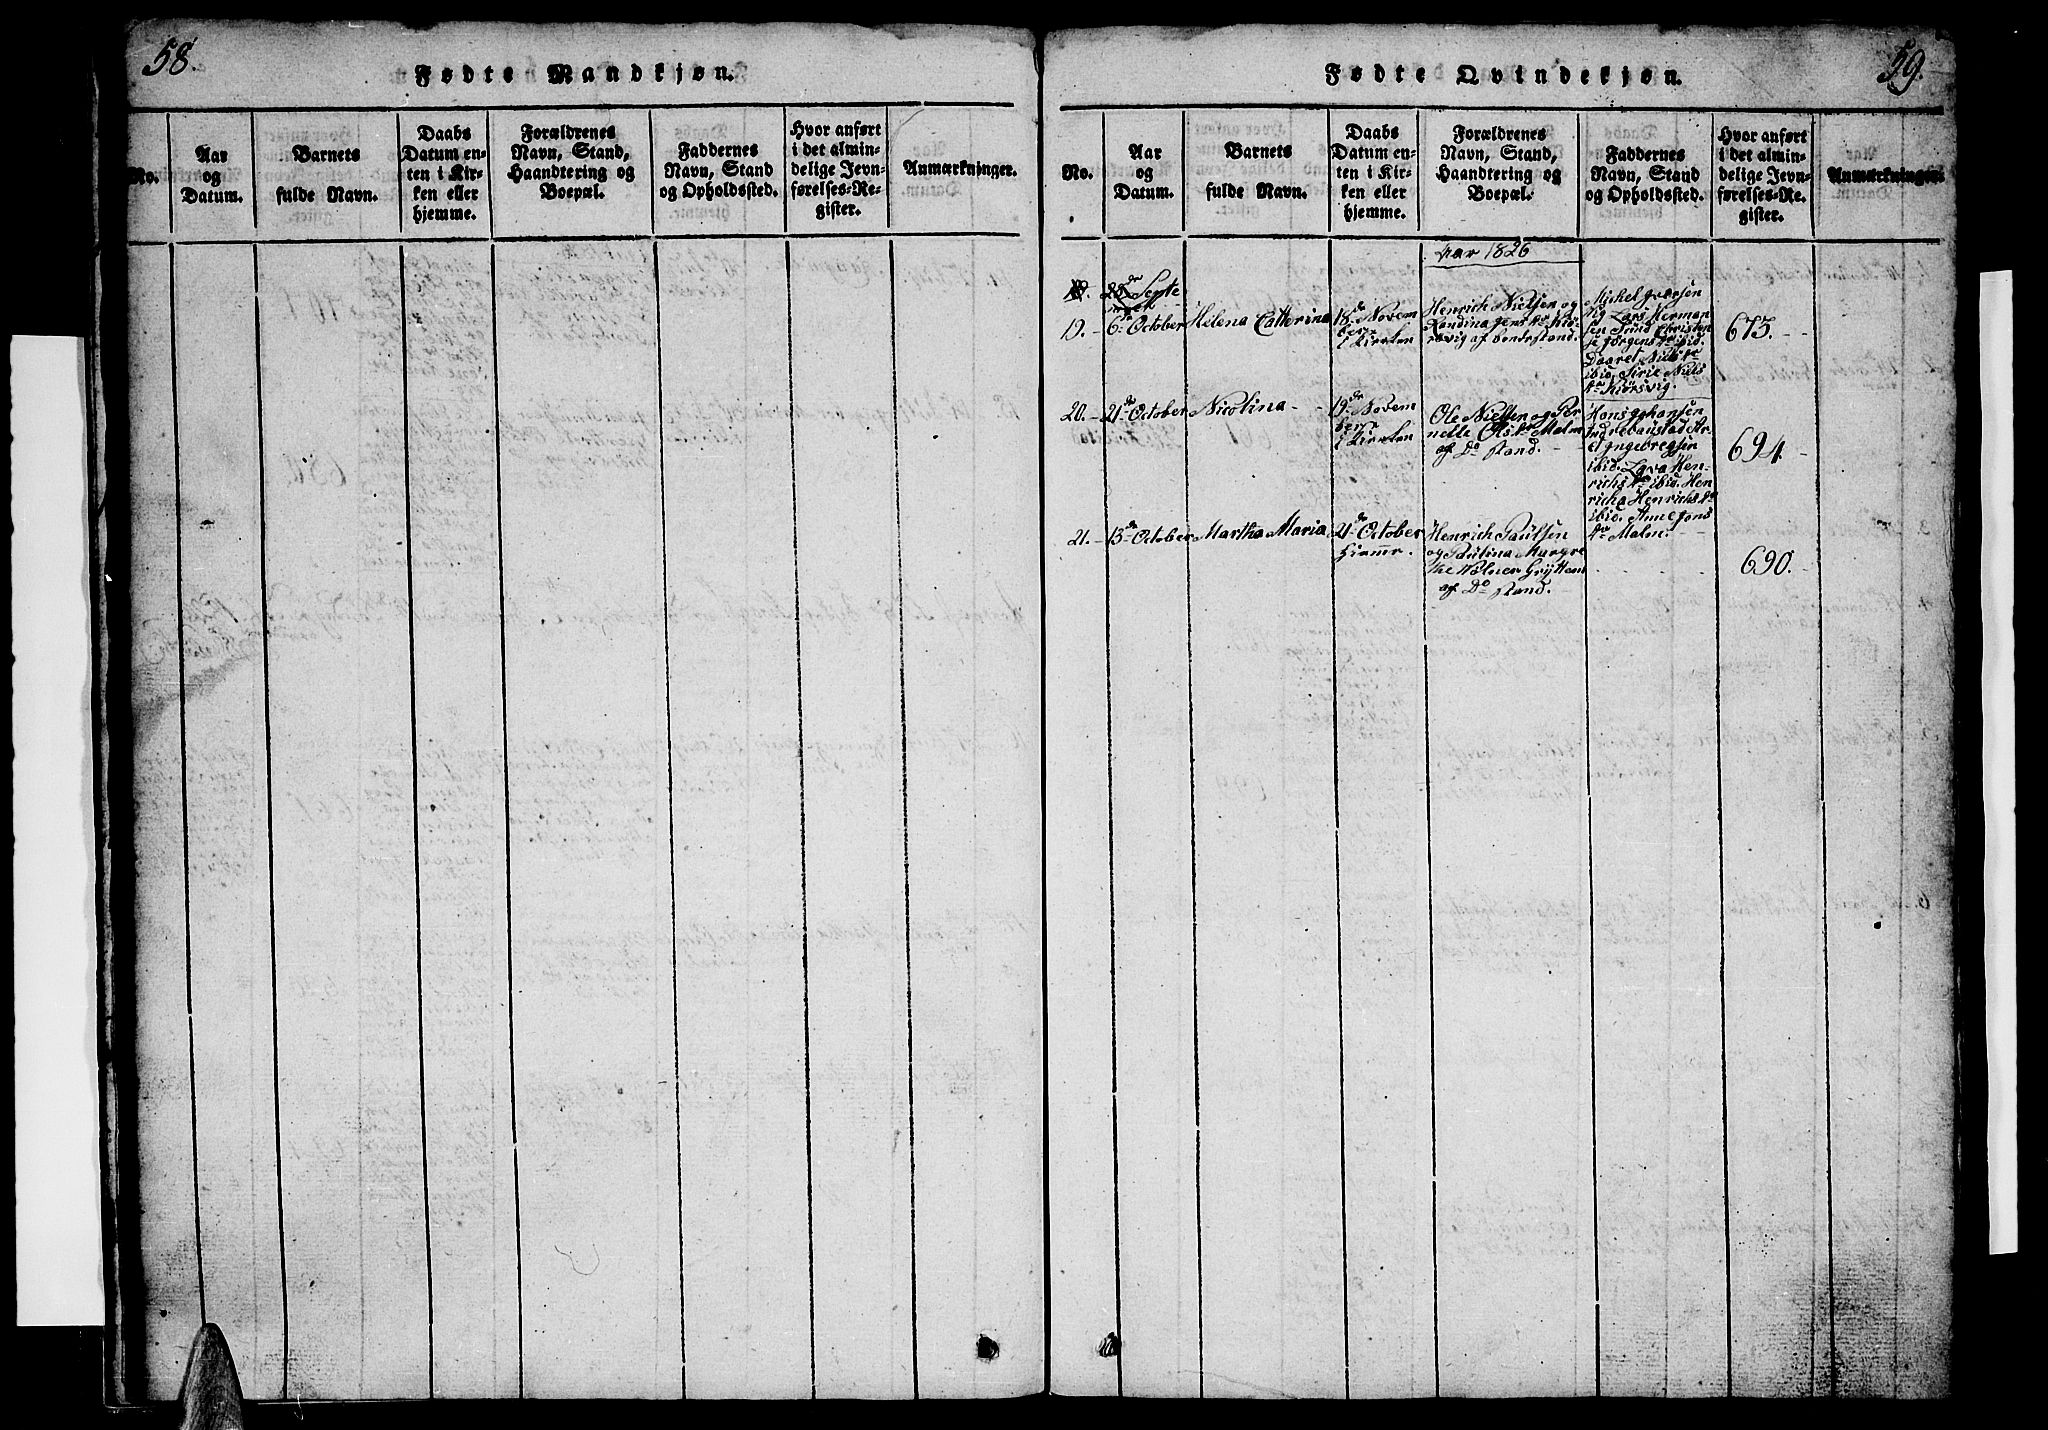 58.
Fødte Mandkjøn.
No.
Aar
og
Datum.
Barnets
fulde Navn.
Daabs
Datum en-
ten i Kir-
ken eller
hjemme.
Forældrenes
Navn, Stand,
Haandtering og
Boepæl.
Faddernes
Navn, Stand
og Opholdssted.
Hvor anført
i det almin-
delige Jevn-
førelses-Re-
gister.
Anmærkninger.
59.
Fødte Qvindekjøn.
No.
Aar
og
Datum.
Barnets
fulde Navn.
Daabs
Datum en-
ten i Kir-
ken eller
hjemme.
Forældrenes
Navn, Stand,
Haandtering og
Boepæl.
Faddernes
Navn, Stand
og Opholdssted.
Hvor anført
i det almin-
delige Jevn-
førelses-Re-
gister.
Anmærkninger.
Aar 1826
19. - 6te October
Helena Catherina
18de Novem
ber
i Kirken
Henrich Nielsen og
Randina Jens dr Kiö-
rsvig af bondestand.
Michel Iversen
Lars Herman
sen Sund Christen
se Jørgens dr ibid.
Daaret Niels dr
ibid. Sirie Niels
dr Kiörsvig.
675.
20. - 21de October
Nicolina
19de Novem
ber
i Kirken
Ole Nielsen og Per
nelle Ols dr Malm
af Do stand.
Hans Johansen
Indrebaustad Ar
Ingebregtsen
ibid. Lava Hen-
richs dr ibid. Hen
richa Henrichs dr
ibid. Anne Jons
dr Malm.
694.
21. - 13de October
Martha Maria
21de October
hiemme.
Henrich Paulsen
og Paulina Margre
the Wolner Grytten
af Do stand.
690.